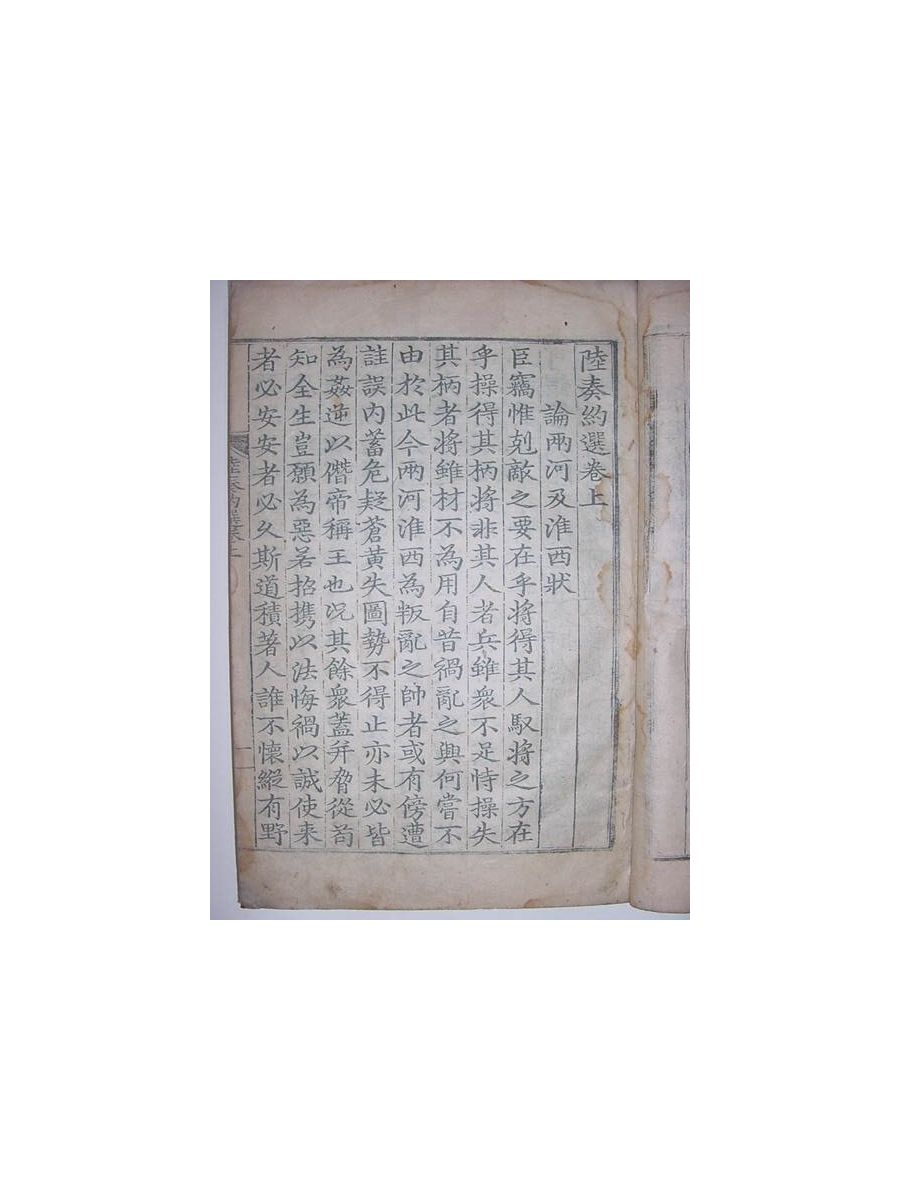 陸奏約選卷上
論兩河及淮西狀
臣竊惟剋敵之要在乎將得其人馭將之方在
乎操得其柄將非其人者兵雖衆不足恃操失
其柄者將雖材不為用自昔禍亂之興何嘗不
由於此今兩河淮西為叛亂之帥者或有傍遭
詿誤內蓄危疑蒼黃失圖勢不得止亦未必皆
為姦逆以僭帝稱王也况其餘衆蓋并脅從苟
知全生豈願為惡若招携以法悔禍以誠使来
者必安安者必久斯道積著人誰不懷縱有野